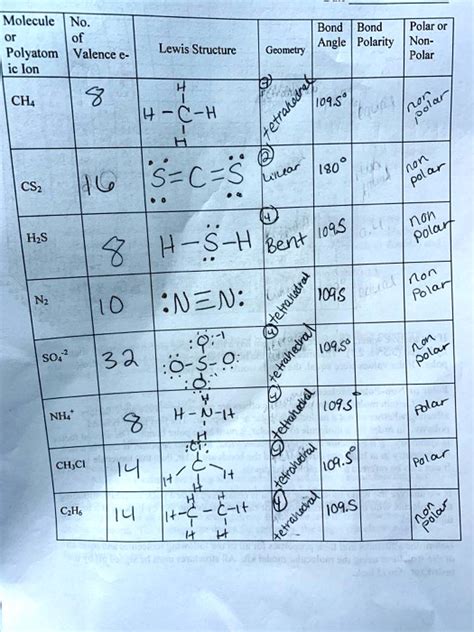 Molecule or Polyatomic Ion | No. of Valence e- | Lewis Structure | Geometry | Bond Angle | Bond Polarity | Polar or Non-Polar
CH₄ | 8 | H H – C – H H | tetrahedral | 109.5° | | non polar
CS₂ | 16 | S = C = S | 2 Linear | 180° | | non polar
H₂S | 8 | H – S – H | 4 Bent | 109.5 | | non polar
N₂ | 10 | :N≡N: | tetrahedral | 109.5 | | non polar
SO₄⁻² | 32 | :O: :O – S – O: :O: | 4 tetrahedral | 109.5° | | non polar
NH₄⁺ | 8 | H H – N – H H | tetrahedral | 109.5° | | Polar
CH₃Cl | 14 | :Cl: H C H H | tetrahedral | 109.5° | | Polar
C₂H₆ | 14 | H H H – C – C – H H H | 4 tetrahedral | 109.5 | | non polar